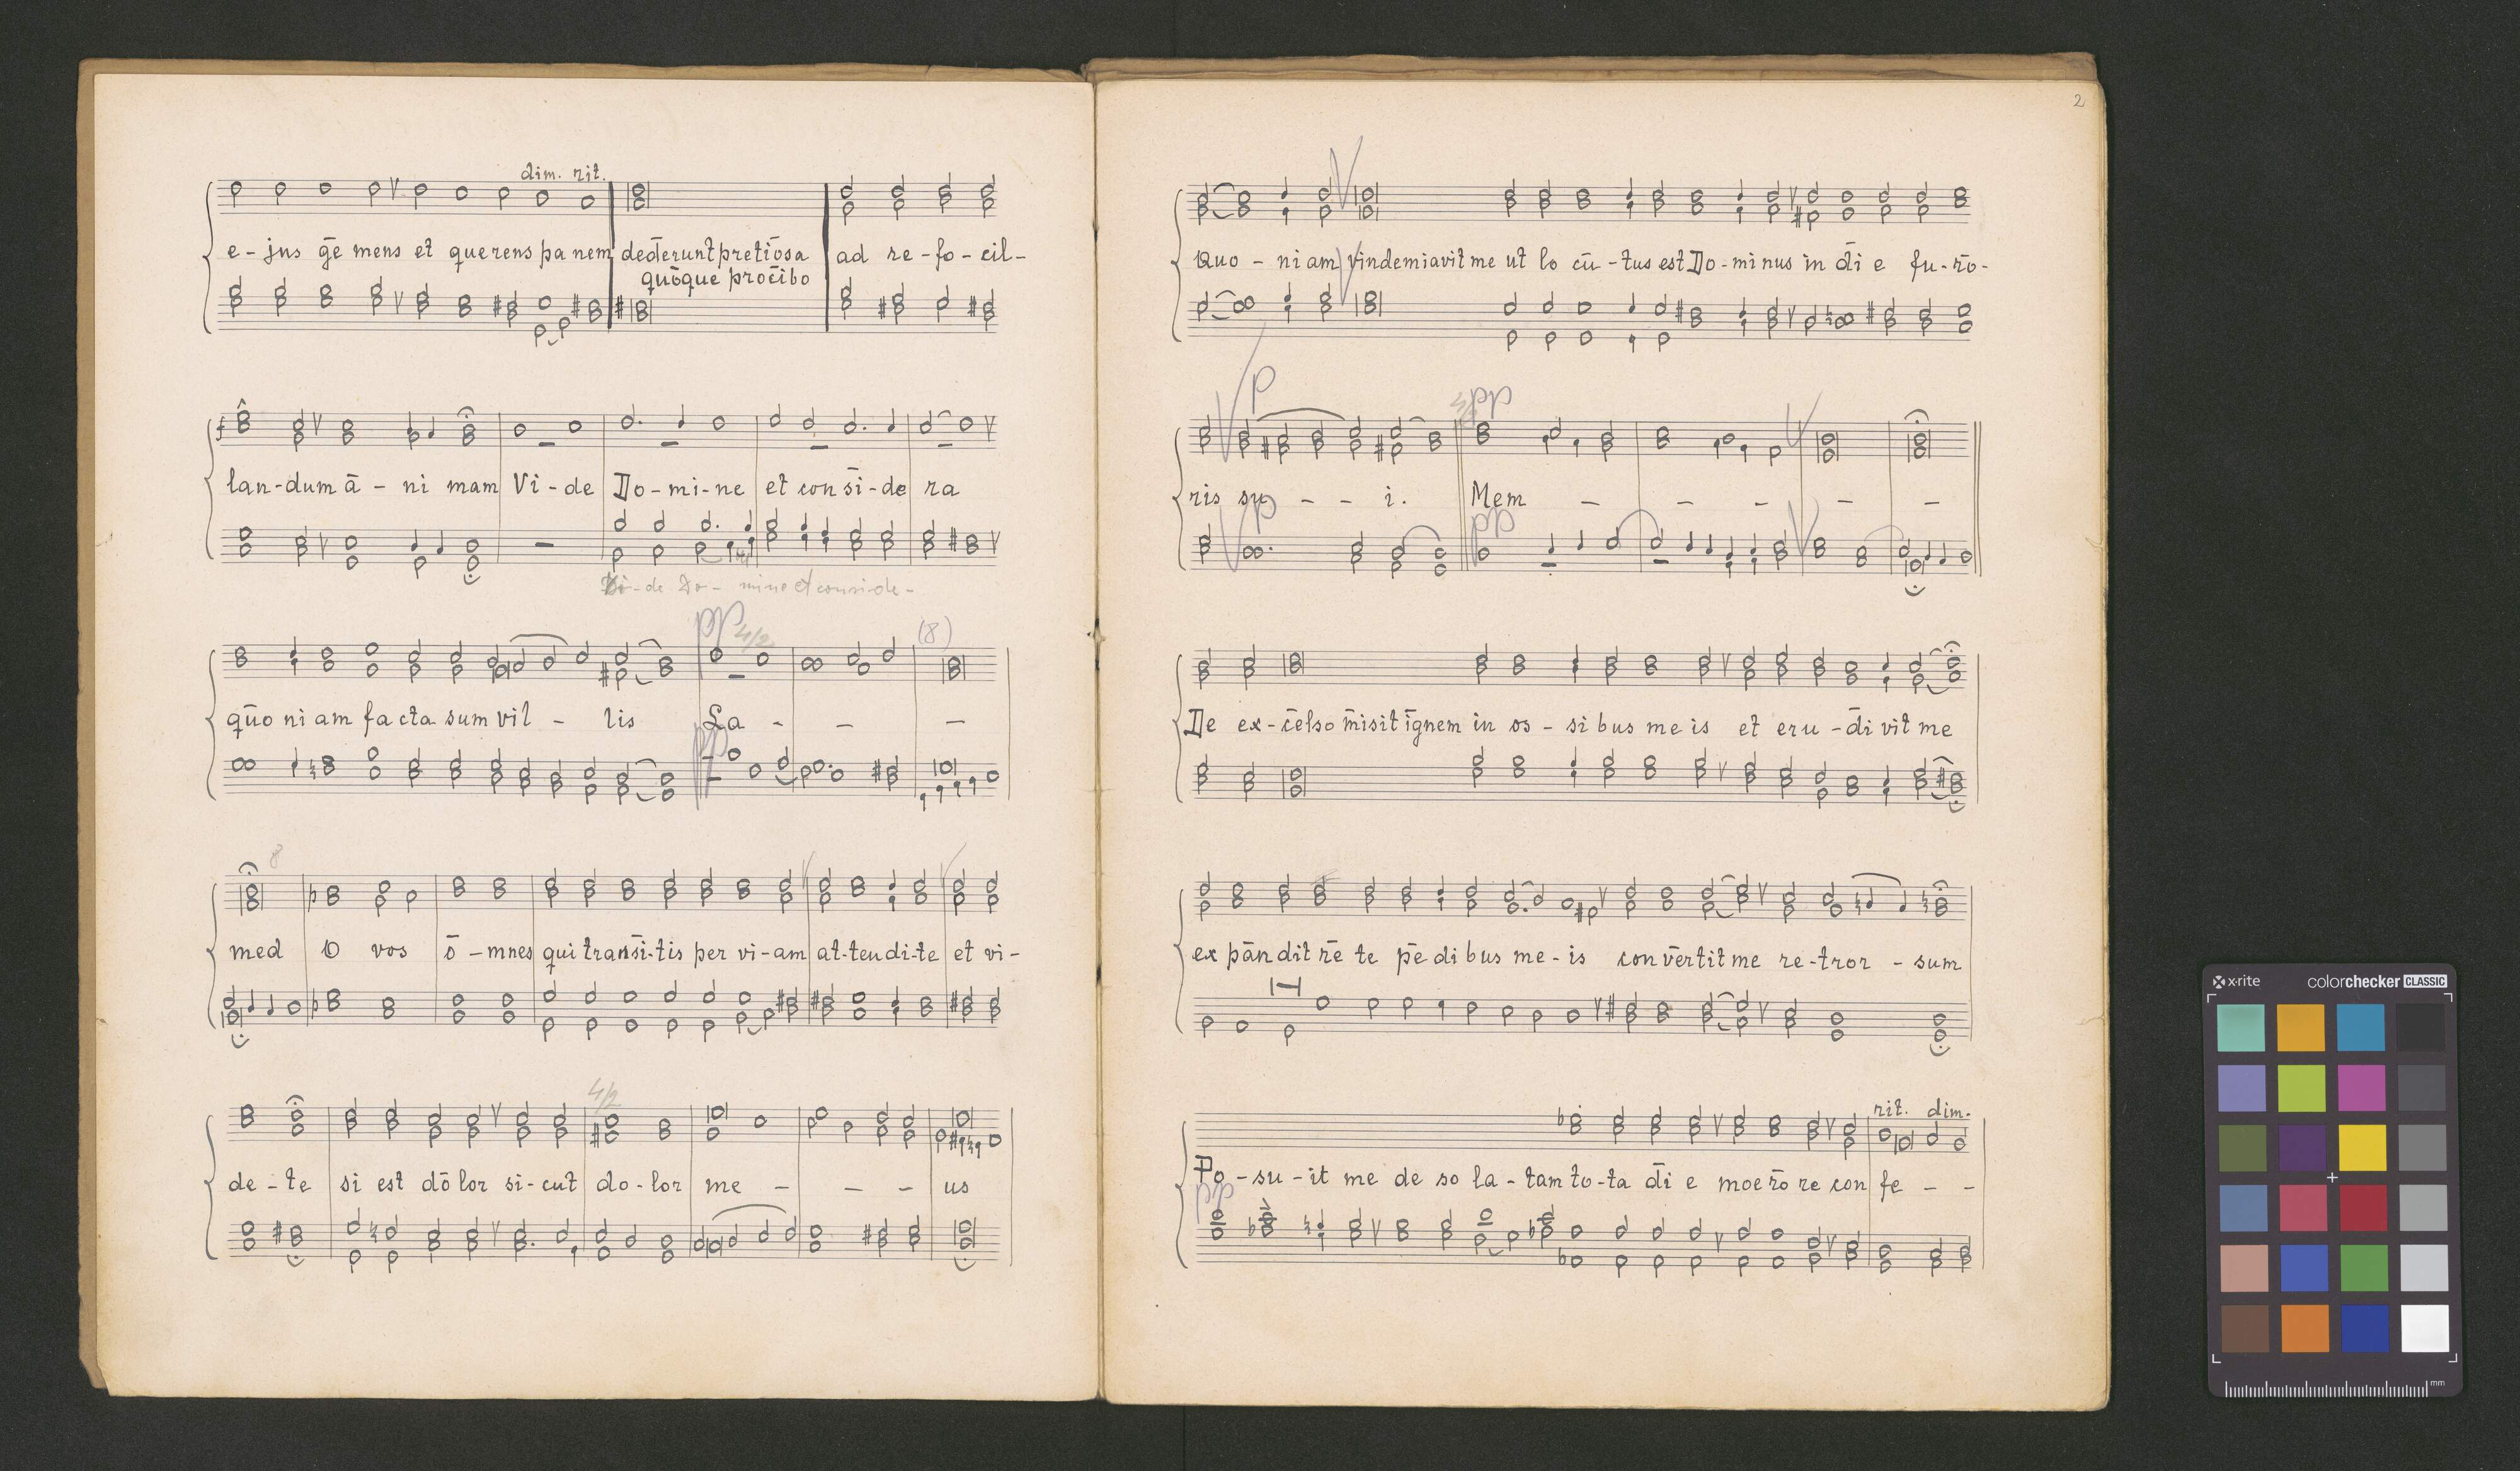 dim. rit.
e - jus ḡe mens et querens pa nem dedērunt pretiōsa ad re - fo - cil -
quōque prōcibo
f
lan - dum ā - ni mam Vi - de Do - mi - ne et con sī - de ra
Vi - de Do - mine et consi - de -
pp 4/2 (8)
quo ni am fa cta sum vil - lis La - - -
pp
8
med O vos ō - mnes qui transī - tis per vi - am at - ten di - te et vi -
4/2
de - te si est dō lor si - cut do - lor me - - - us
2
Quo - ni am vindemiavit me ut lo cū - tus est Do - mi nus in dī e fu - rō -
p 4/2 pp
ris su - - i. Mem - - - - -
p pp
De ex - cēlso mīsit īgnem in os - si bus me is et eru - dī vit me
ex pān dit rē te pē di bus me - is con vērtit me re - tror - sum
rit. dim.
Po - su - it me de so la - tam to - ta dī e moe rō re con fe - -
pp
x·rite colorchecker CLASSIC
mm